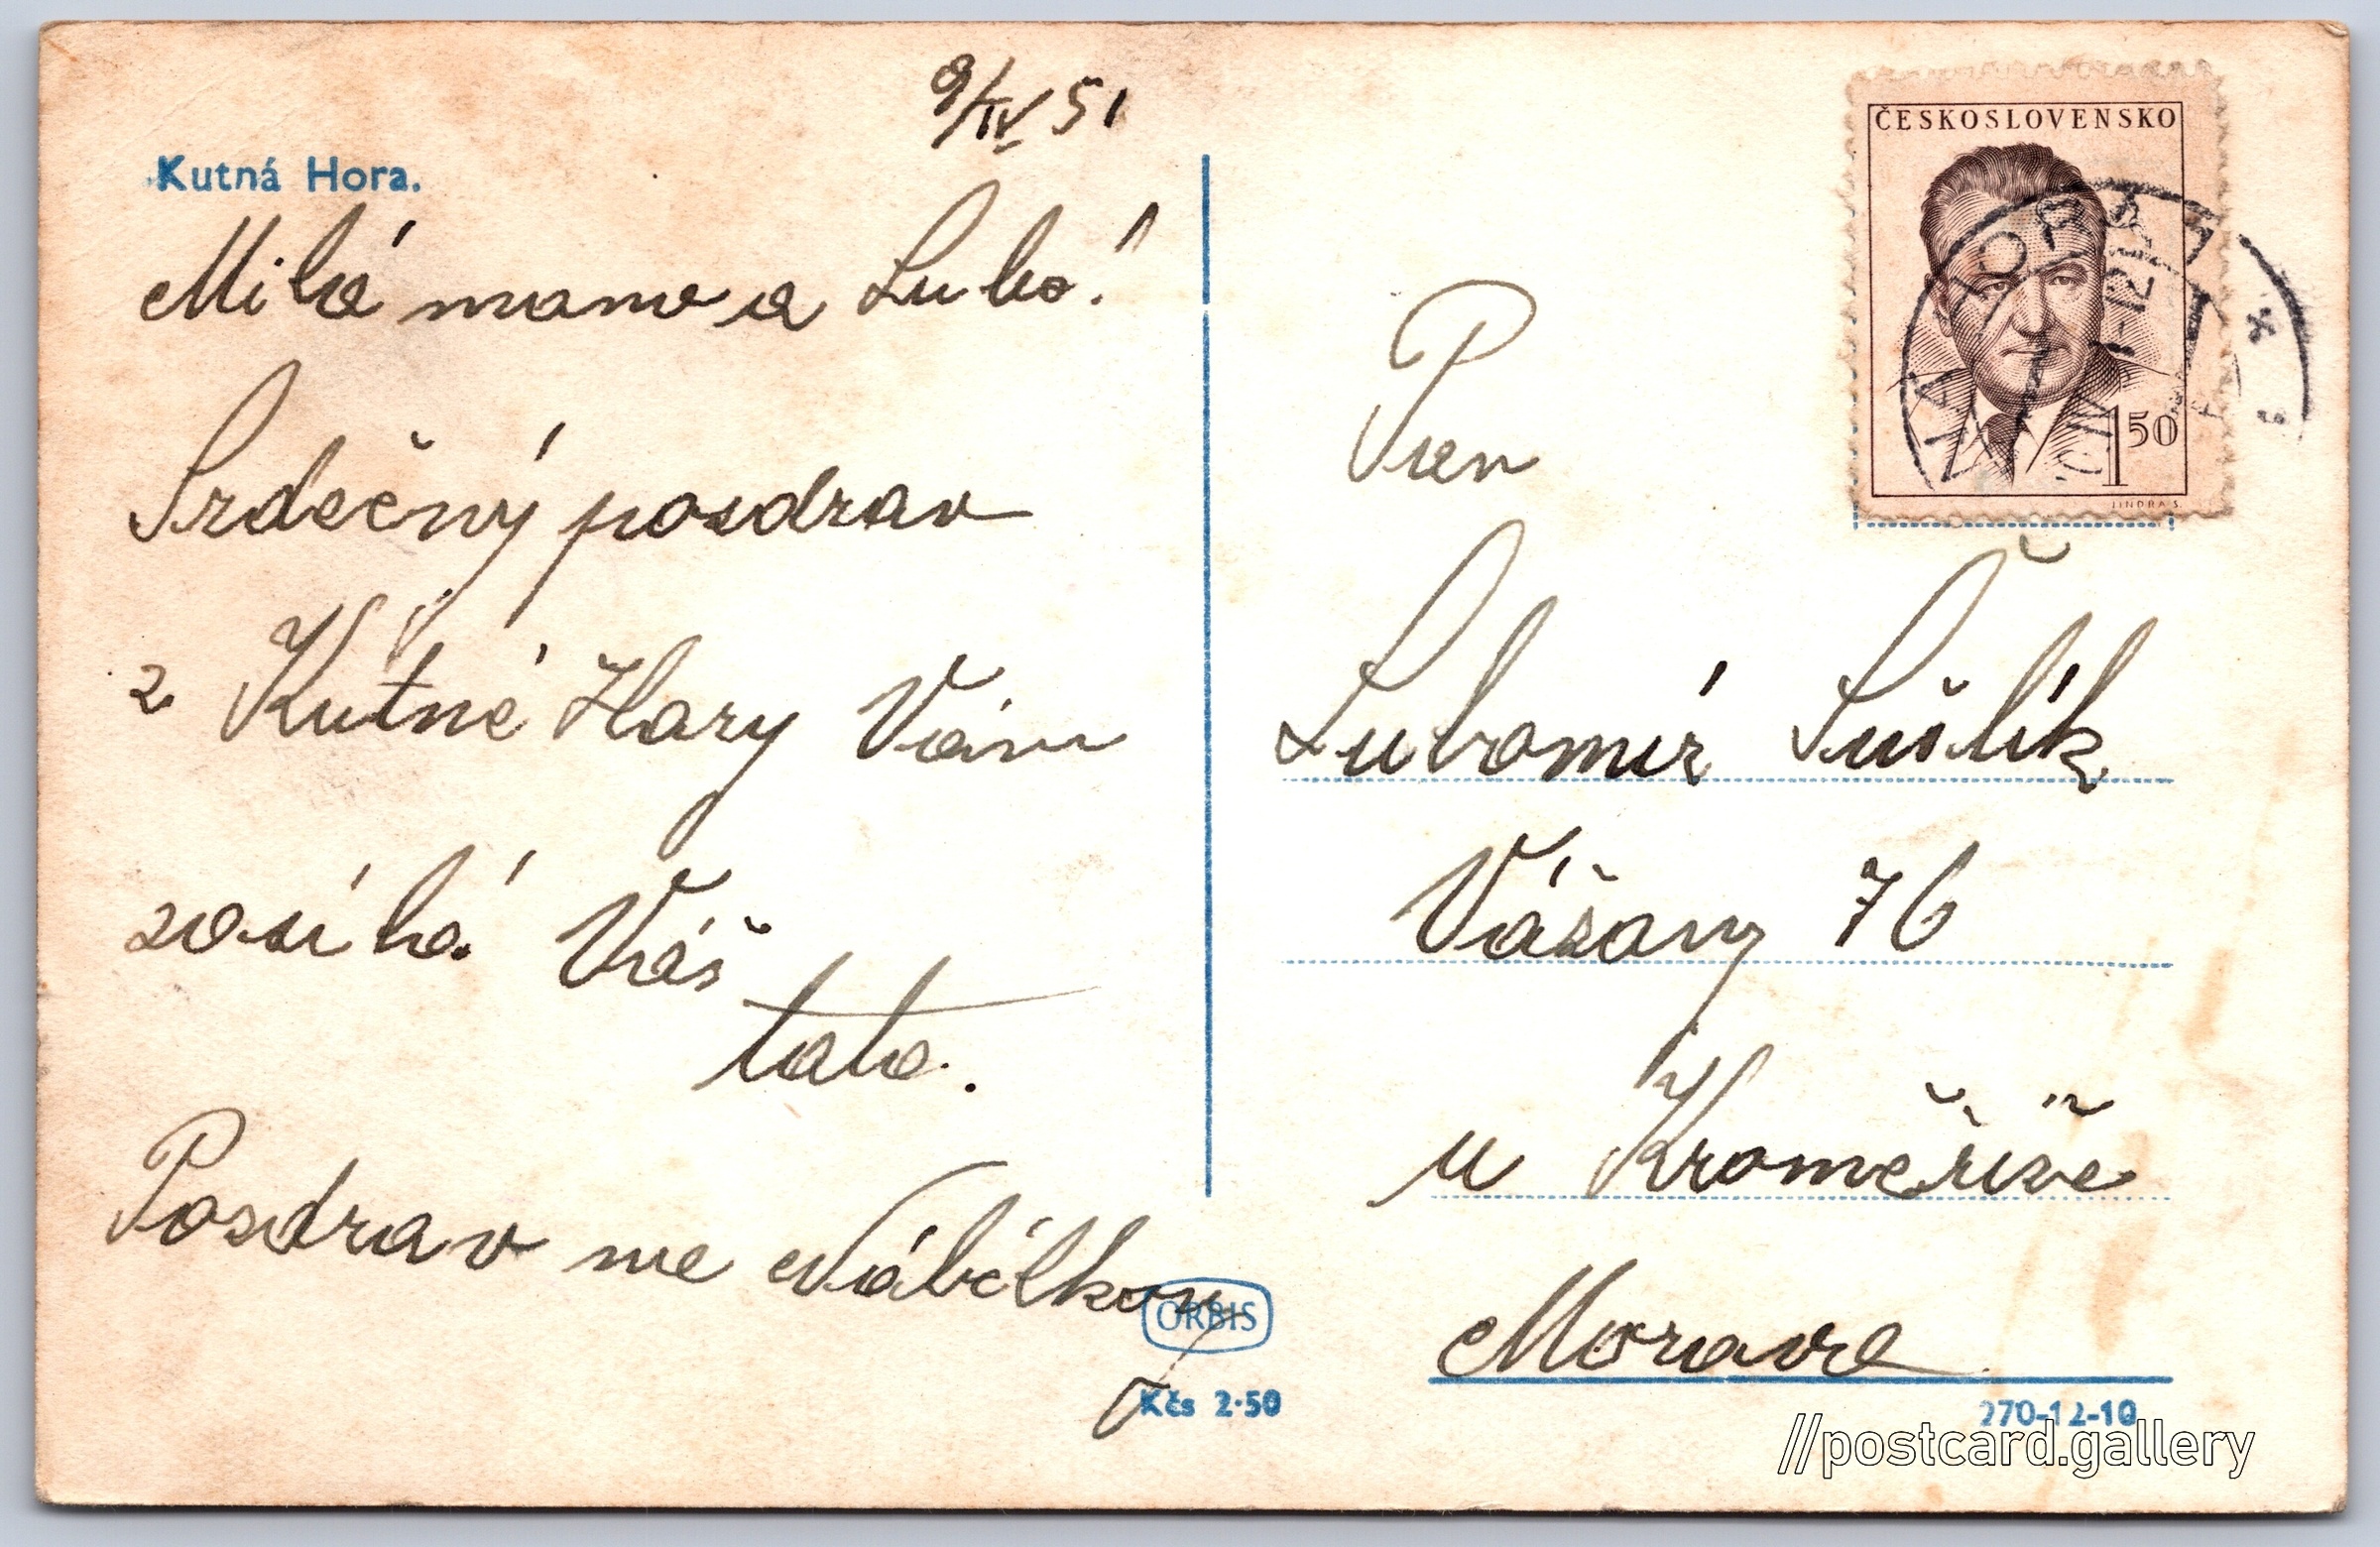 9/IV 51
Kutná Hora.
Milá mamo a Lubo!
Srdečný pozdrav
z Kutné Hory Vám
zasílá Váš
tata.
Pozdrav na Nábělkovy
ORBIS
Kčs 2·50
ČESKOSLOVENSKO
1 50
JINDRA S.
Pan
Lubomír Sušlík
Vážany 76
u Kroměříže
Morava
270-12-10
//postcard.gallery